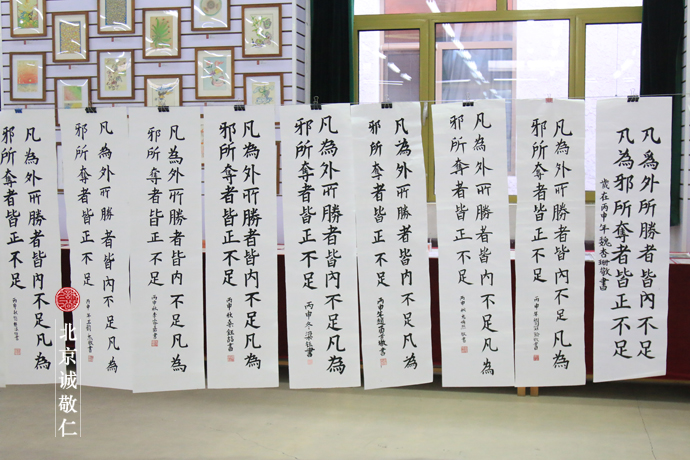 凡為外所勝者皆內不足
凡為邪所奪者皆正不足
歲在丙申年魏杏珊敬書
凡為外所勝者皆內不足凡為
邪所奪者皆正不足
丙申年
凡為外所勝者皆內不足凡為
邪所奪者皆正不足
丙申
凡為外所勝者皆內不足凡為
邪所奪者皆正不足
丙申年 敬書
凡為外所勝者皆內不足凡為
邪所奪者皆正不足
丙申冬梁 書
凡為外所勝者皆內不足凡為
邪所奪者皆正不足
丙申秋 書
凡為外所勝者皆內不足凡為
邪所奪者皆正不足
丙申秋李 書
凡為外所勝者皆內不足凡為
邪所奪者皆正不足
丙申年 敬書
凡為外所勝者皆內不足凡為
邪所奪者皆正不足
丙申秋
北京诚敬仁